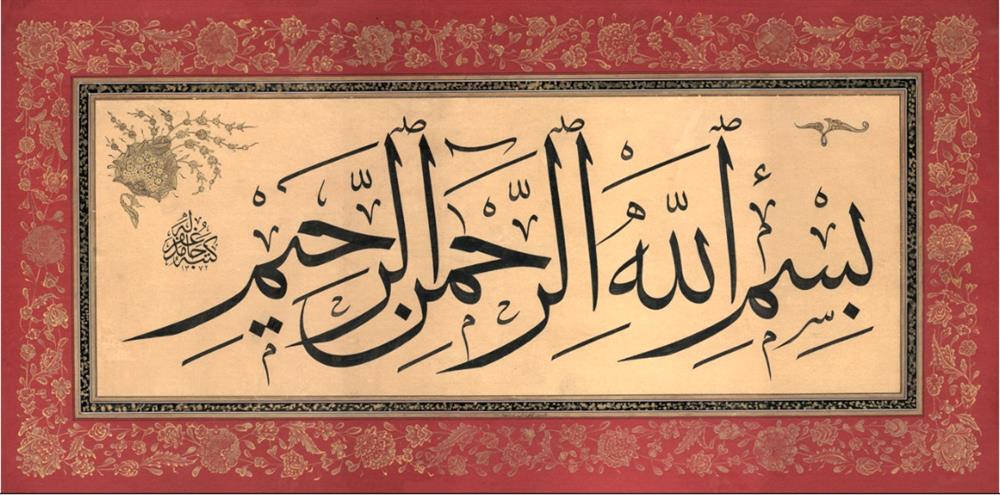 بِسْمِ اللّٰهِ الرَّحْمٰنِ الرَّحِيمِ
كتبه حامد غفر له
١٣٧٢